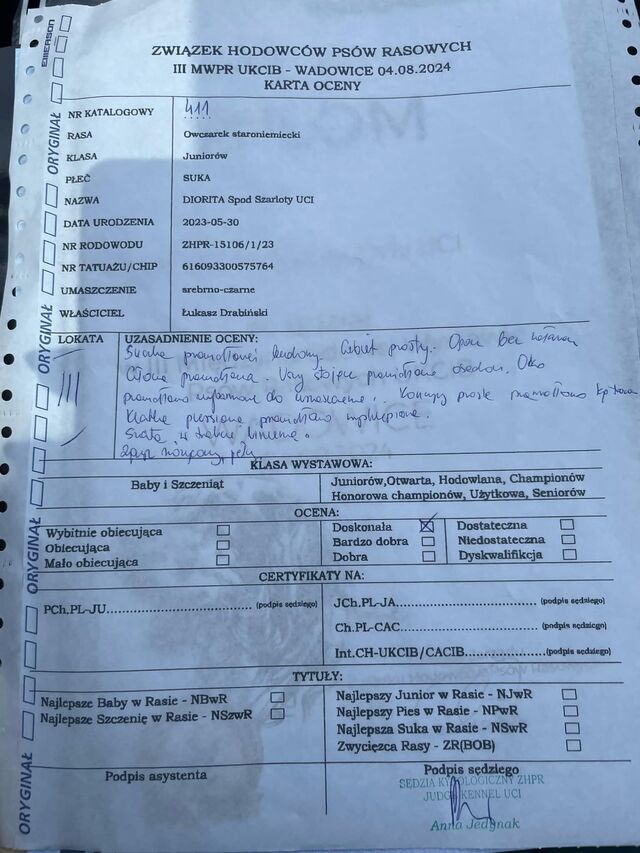 EMERSON
ORYGINAŁ
ZWIĄZEK HODOWCÓW PSÓW RASOWYCH
III MWPR UKCIB - WADOWICE 04.08.2024
KARTA OCENY
NR KATALOGOWY 411
RASA Owczarek staroniemiecki
KLASA Juniorów
PŁEĆ SUKA
NAZWA DIORITA Spod Szarloty UCI
DATA URODZENIA 2023-05-30
NR RODOWODU ZHPR-15106/1/23
NR TATUAŻU/CHIP 616093300575764
UMASZCZENIE srebrno-czarne
WŁAŚCICIEL Łukasz Drabiński
ORYGINAŁ
LOKATA UZASADNIENIE OCENY:
III
Suczka prawidłowej budowy. Grzbiet prosty. Ogon bez
prawidłowa. Uszy stojące prawidłowo osadzone. Oko
prawidłowo
Klatka piersiowa prawidłowo wysklepiona.
Szata w
KLASA WYSTAWOWA:
Baby i Szczeniąt
Juniorów,Otwarta, Hodowlana, Championów
Honorowa championów, Użytkowa, Seniorów
OCENA:
ORYGINAŁ
Wybitnie obiecująca
Obiecująca
Mało obiecująca
Doskonała
Bardzo dobra
Dobra
Dostateczna
Niedostateczna
Dyskwalifikcja
CERTYFIKATY NA:
PCh.PL-JU (podpis sędziego)
JCh.PL-JA (podpis sędziego)
Ch.PL-CAC (podpis sędziego)
Int.CH-UKCIB/CACIB (podpis sędziego)
TYTUŁY:
Najlepsze Baby w Rasie - NBwR
Najlepsze Szczenię w Rasie - NSzwR
Najlepszy Junior w Rasie - NJwR
Najlepszy Pies w Rasie - NPwR
Najlepsza Suka w Rasie - NSwR
Zwycięzca Rasy - ZR(BOB)
ORYGINAŁ
Podpis asystenta
Podpis sędziego
SĘDZIA KYNOLOGICZNY ZHPR
JUDGE KENNEL UCI
Anna Jedynak